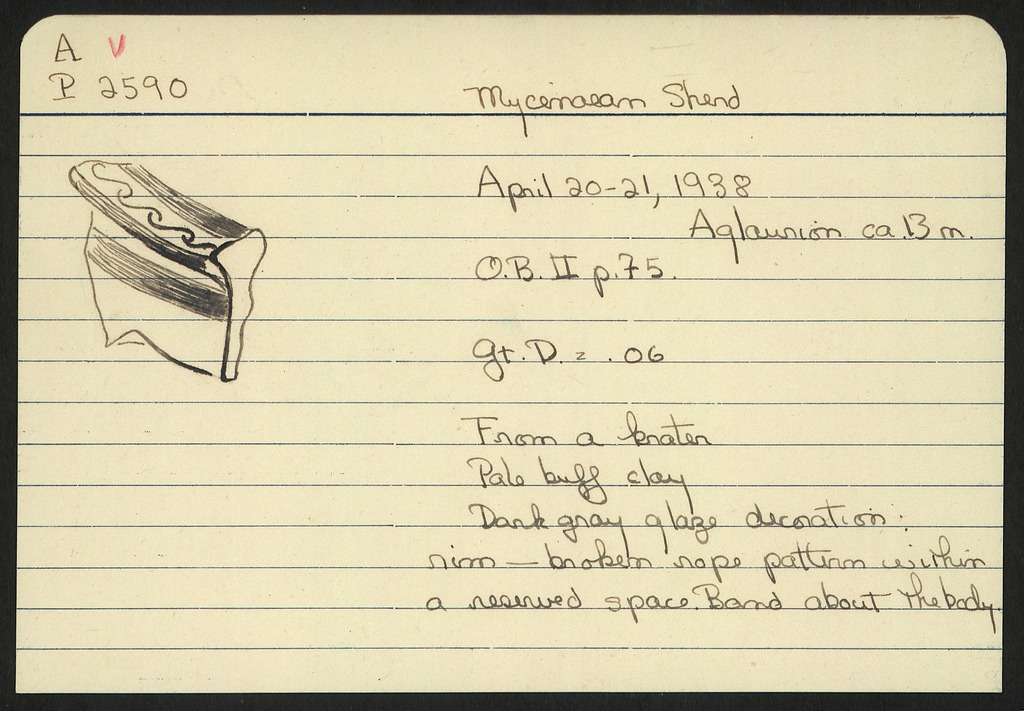 A V
P 2590
Mycenaean Sherd
April 20-21, 1938
Aglaurion ca. 13 m.
O.B. II p. 75.
Gt. D. = .06
From a krater
Pale buff clay
Dark gray glaze decoration:
rim — broken rope pattern within
a reserved space. Band about the body.